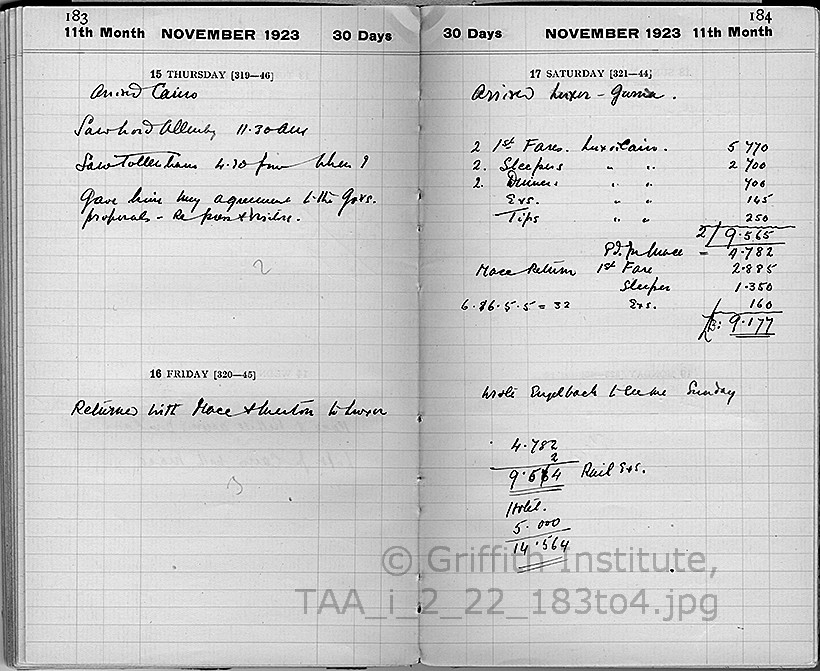 183
11th Month NOVEMBER 1923 30 Days
15 THURSDAY [319—46]
Arrived Cairo
Saw Lord Allenby 11.30 am
Saw Tottenham 4.30 pm
Gave him my agreement to the Govs.
proposals - Re press & visitors.
2
16 FRIDAY [320—45]
Returned with Mace & Merton to Luxor
3
184
30 Days NOVEMBER 1923 11th Month
17 SATURDAY [321—44]
Arrived Luxor - Gurna.
2 1st Fares. Luxor Cairo. 5 770
2. Sleepers " " 2 700
2. Dinners " " 400
Exs. " " 145
Tips " " 250
2/ 9.565
Pd. for Mace = 4.782
Mace Return 1st Fare 2.885
Sleeper 1.350
6.86.5.5 = 32 Exs. 160
9.177
Wrote Engelbach to come Sunday
4.782
2
9.564 Rail Exs.
Hotel.
5.000
14.564
© Griffith Institute,
TAA_i_2_22_183to4.jpg